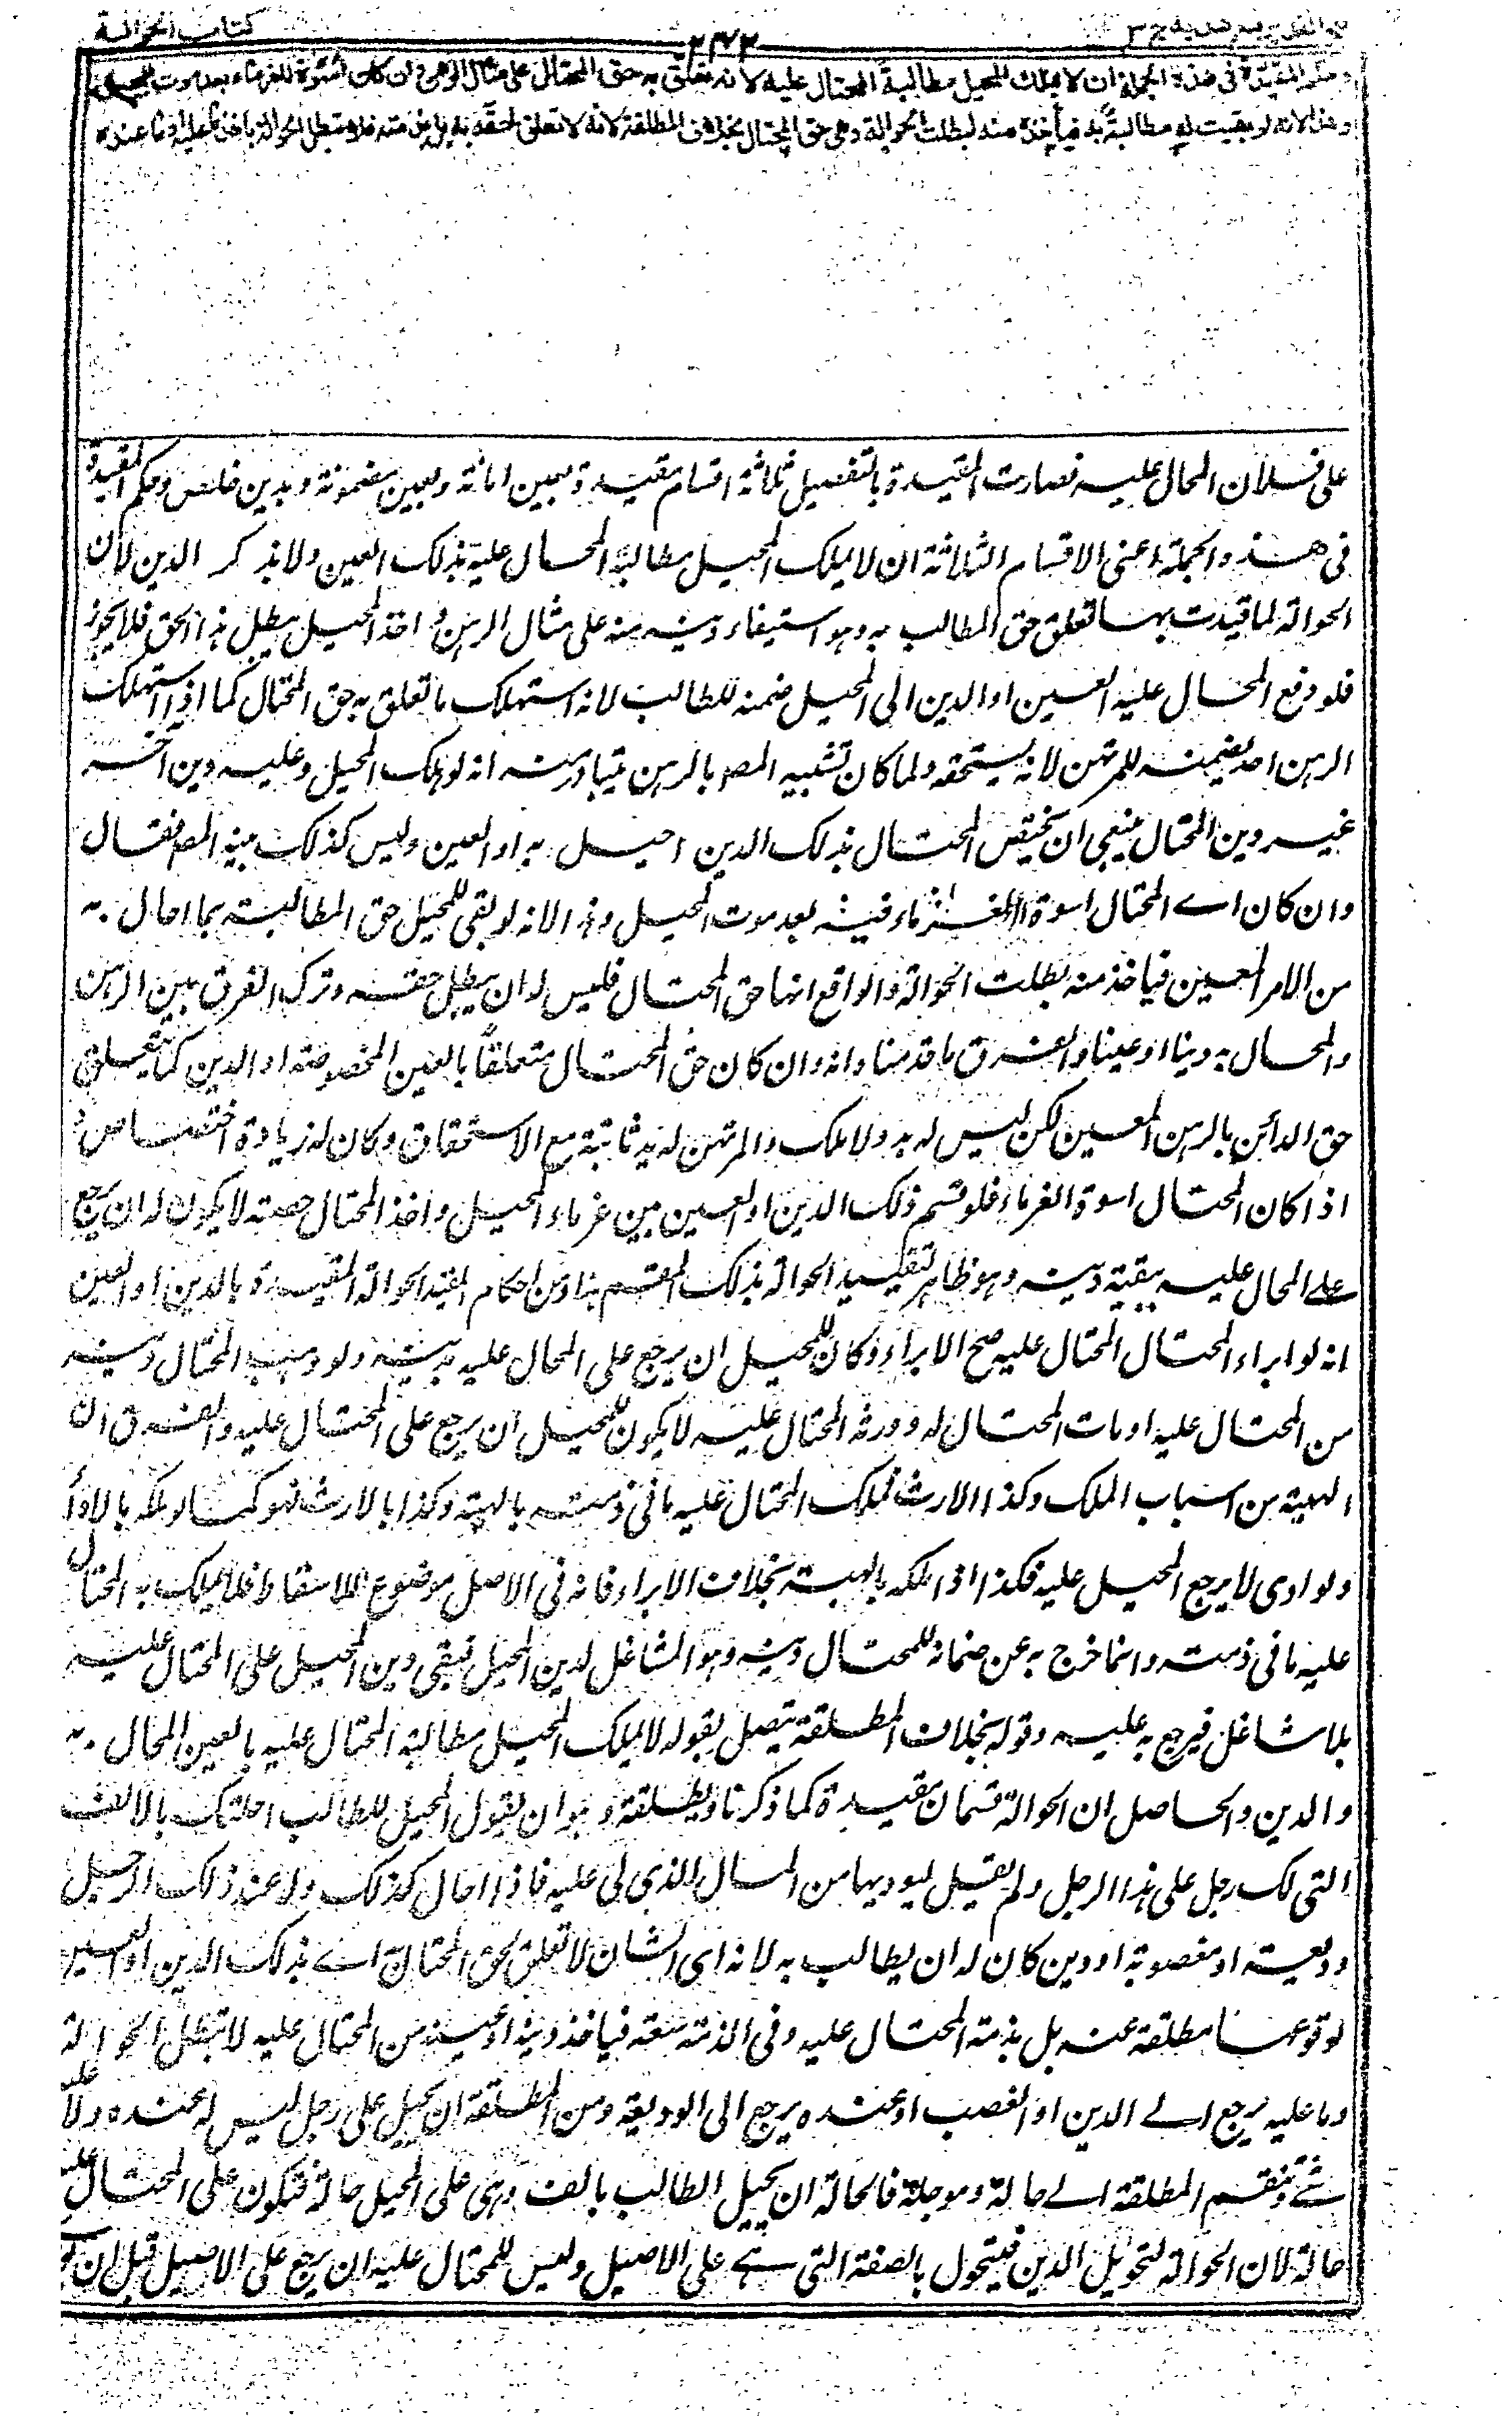 كتاب الحوالة
وحكم المقيدة فى هذه الجملة ان لا يملك المحيل مطالبة المحتال عليه لانه تعلق به حق المحتال على مثال الرهن وان كان اسوة للغرماء بعد موت المحيل
وهذا لانه لو بقيت له مطالبة به فيأخذه منه لبطلت الحوالة وهى حق المحتال بخلاف المطلقة لانه لا تعلق لحقه به بل بذمته فلا تبطل الحوالة باخذ ما عليه او ما عنده
على فلان المحال عليه فصارت المقيدة بالتفصيل ثلاثة اقسام مقيدة بعين امانة وبعين مضمونة وبدين خاص وحكم المقيدة
فى هذه الجملة اعنى الاقسام الثلاثة ان لا يملك المحيل مطالبة المحال عليه بذلك العين ولا بذكر الدين لان
الحوالة لما قيدت بها تعلق حق الطالب به وهو استيفاء دينه منه على مثال الرهن واخذ المحيل يبطل هذا الحق فلا يجوز
فلو دفع المحال عليه العين او الدين الى المحيل ضمنه للطالب لانه استهلك ما تعلق به حق المحتال كما اذا استهلك
الرهن احد يضمنه للمرتهن لانه يستحقه ولما كان تشبيه المصـ بالرهن يتبادر منه انه لو هلك المحيل وعليه دين آخر
غير دين المحتال ينبغى ان يختص المحتال بذلك الدين احيل به او العين وليس كذلك بينه المصـ فقال
وان كان اے المحتال اسوة للغرماء فيه بعد موت المحيل وهذا لانه لو بقى للمحيل حق المطالبة بما احال به
من الامر المعين فياخذ منه بطلت الحوالة والواقع انها حق المحتال فليس له ان يبطل حقه وترك الفرق بين الرهن
والمحال به دينا او عينا والفرق ما قدمناه انه وان كان حق المحتال متعلقا بالعين المخصوصة او الدين كما يتعلق
حق الدائن بالرهن المعين لكن ليس له يد ولا ملك والمرتهن له يد ثابتة مع الاستحقاق وكان له زيادة اختصاص و
اذا كان المحتال اسوة الغرماء فلو قسم ذلك الدين او العين بين غرماء المحيل واخذ المحتال حصته لا يكون له ان يرجع
على المحال عليه ببقية دينه وهو ظاهر لتقييد الحوالة بذلك المقسم هذا ومن احكام المقيد الحوالة المقيدة بالدين او العين
انه لو ابراء المحتال المحتال عليه صح الابراء وكان للمحيل ان يرجع على المحال عليه بدينه ولو وهب المحتال دينه
من المحتال عليه او مات المحتال له وورثه المحتال عليه لا يكون للمحيل ان يرجع على المحتال عليه والفرق ان
الهبة من اسباب الملك وكذا الارث فملك المحتال عليه ما فى ذمته بالهبة وكذا بالارث فهو كما لو ملكه بالاداء
ولو ادى لا يرجع المحيل عليه فكذا اذا ملكه بالهبة بخلاف الابراء فانه فى الاصل موضوع للاسقاط فلا يملك به المحتال
عليه ما فى ذمته وانما خرج به عن ضمانه للمحتال دينه وهو الشاغل لدين المحيل فبقى دين المحيل على المحتال عليه
بلا شاغل فيرجع به عليه وقوله بخلاف المطلقة يتصل بقوله لا يملك المحيل مطالبة المحتال عليه بالعين المحال به
والدين والحاصل ان الحوالة قسمان مقيدة كما ذكرنا ومطلقة وهو ان يقول المحيل للطالب احلتك بالالف
التى لك رجل على هذا الرجل ولم يقيل ليؤديها من المال الذى لى عليه فاذا احال كذلك وله عند ذلك الرجل
وديعة او مغصوبة او دين كان له ان يطالب به لانه اى الشان لا تعلق لحق المحتال اے بذلك الدين او العين
لوقوعها مطلقة عنه بل بذمة المحتال عليه وفى الذمة سعة فياخذ دينه او عينه من المحتال عليه لا تبطل الحوالة
وما عليه يرجع الے الدين او الغصب او عنده يرجع الى الوديعة ومن المطلقة ان يحيل على رجل ليس له عنده ولا عليه
شئ وتنقسم المطلقة الے حالة وموجلة فالحالة ان يحيل الطالب بالف وهى على المحيل حالة فتكون على المحتال عليه
حالة لان الحوالة لتحويل الدين فيتحول بالصفة التى هے على الاصيل وليس للمحتال عليه ان يرجع على الاصيل قبل ان